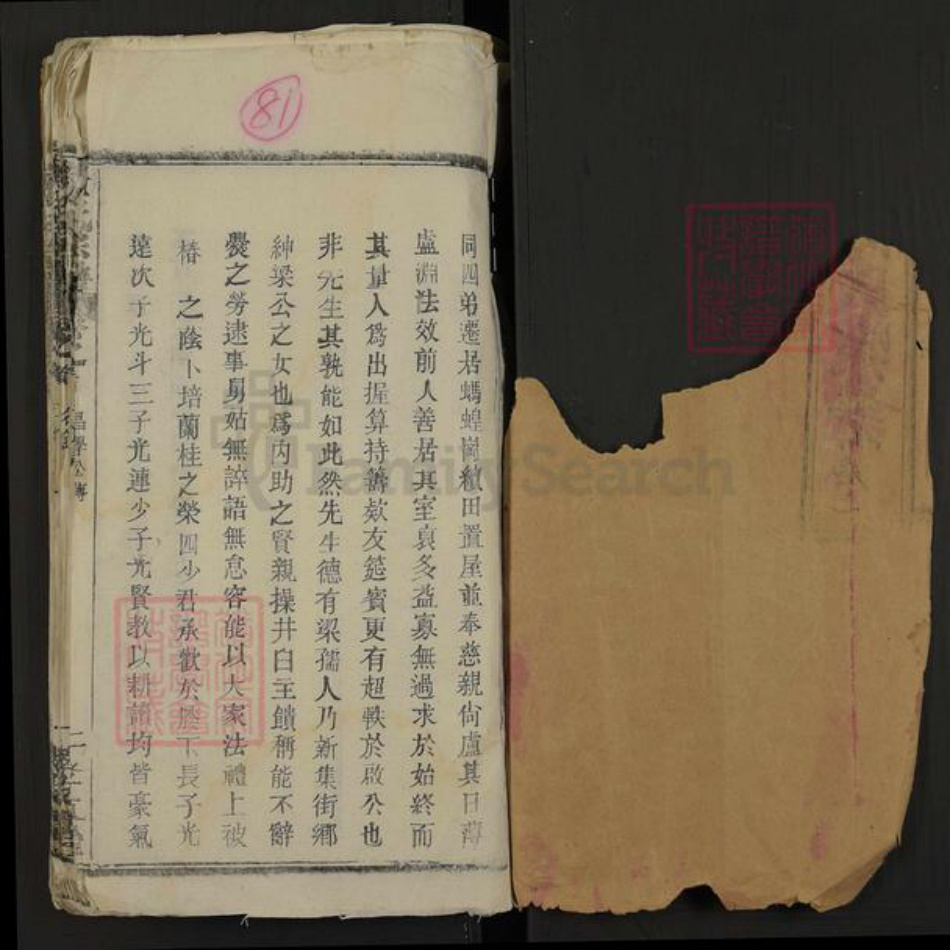 81
同四弟遷居螞蝗崗緻田置屋並奉慈親尙廬其日薄
盧淵法效前人善居其室裒多益寡無過求於始終而
其量人爲出握算持籌欵友筵賓更有超軼於啟公也
非先生其孰能如此然先生德有梁孺人乃新集街鄉
紳梁公之女也爲内助之賢親操井臼主饋稱能不辭
爨之勞逮事舅姑無誶語無怠容能以大家法禮上被
椿 之陰卜培蘭桂之榮四少君承歡於膝下長子光
遠次子光斗三子光連少子光賢教以耕讀均皆豪氣
FamilySearch